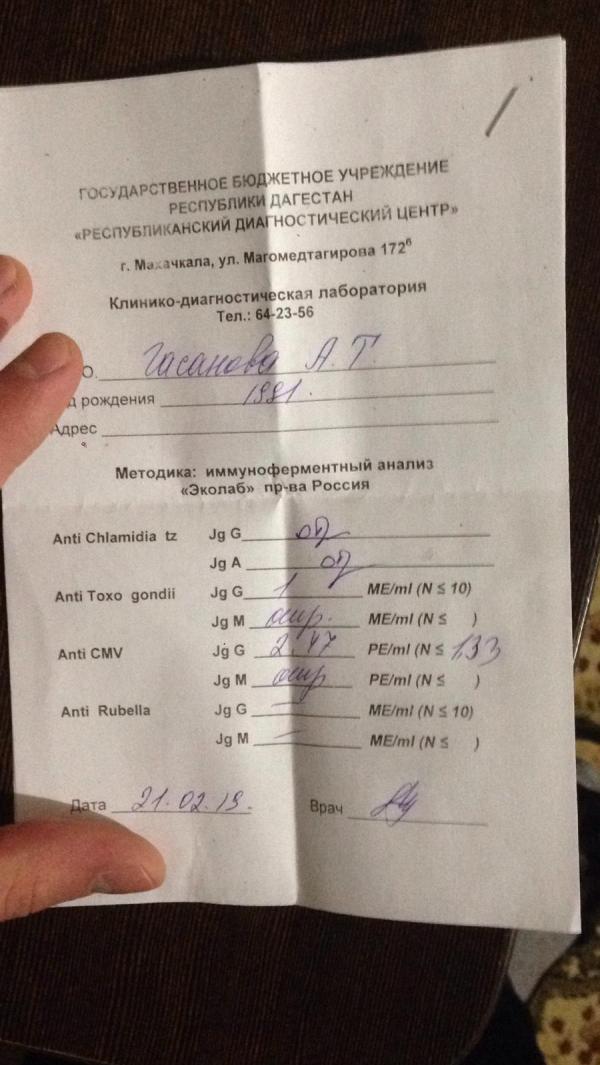 ГОСУДАРСТВЕННОЕ БЮДЖЕТНОЕ УЧРЕЖДЕНИЕ
РЕСПУБЛИКИ ДАГЕСТАН
«РЕСПУБЛИКАНСКИЙ ДИАГНОСТИЧЕСКИЙ ЦЕНТР»
г. Махачкала, ул. Магомедтагирова 172б
Клинико-диагностическая лаборатория
Тел.: 64-23-56
О. Гасанова А. Т.
д рождения 1991.
Адрес
Методика: иммуноферментный анализ
«Эколаб» пр-ва Россия
Anti Chlamidia tz Jg G
Jg A
Anti Toxo gondii Jg G 1 ME/ml (N ≤ 10)
Jg M отр. ME/ml (N ≤ )
Anti CMV Jg G 2.47 PE/ml (N ≤ 1,33
Jg M отр PE/ml (N ≤ )
Anti Rubella Jg G — ME/ml (N ≤ 10)
Jg M — ME/ml (N ≤ )
Дата 21.02.19. Врач